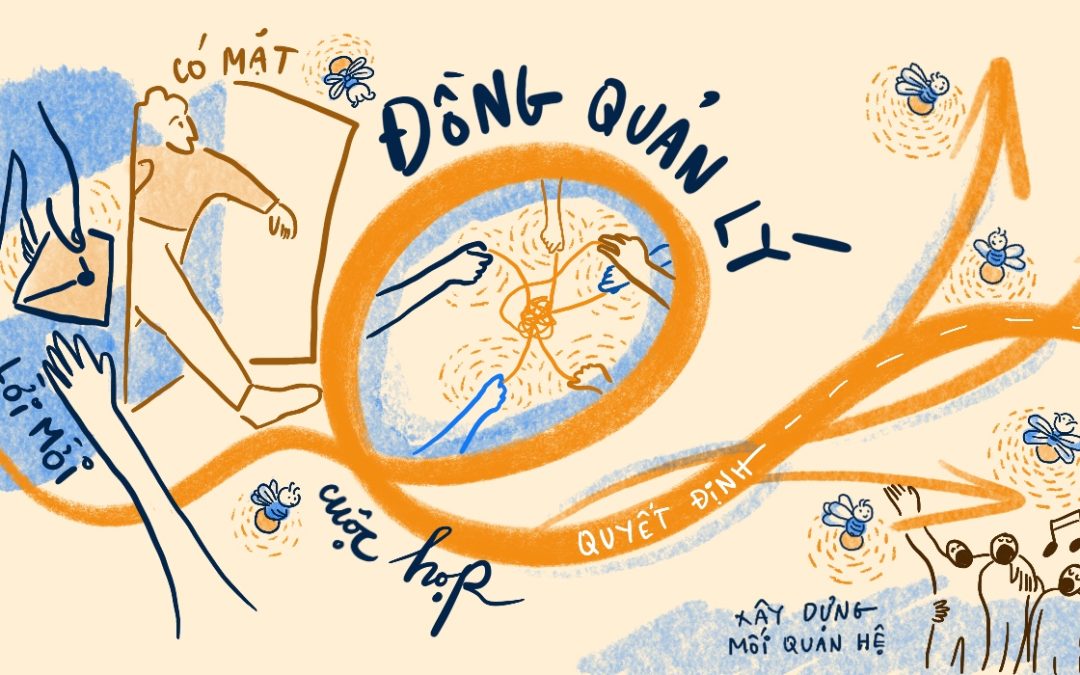 CÓ MẶT
ĐỒNG QUẢN LÝ
LỜI MỜI
cuộc họp
QUYẾT ĐỊNH
XÂY DỰNG
MỐI QUAN HỆ